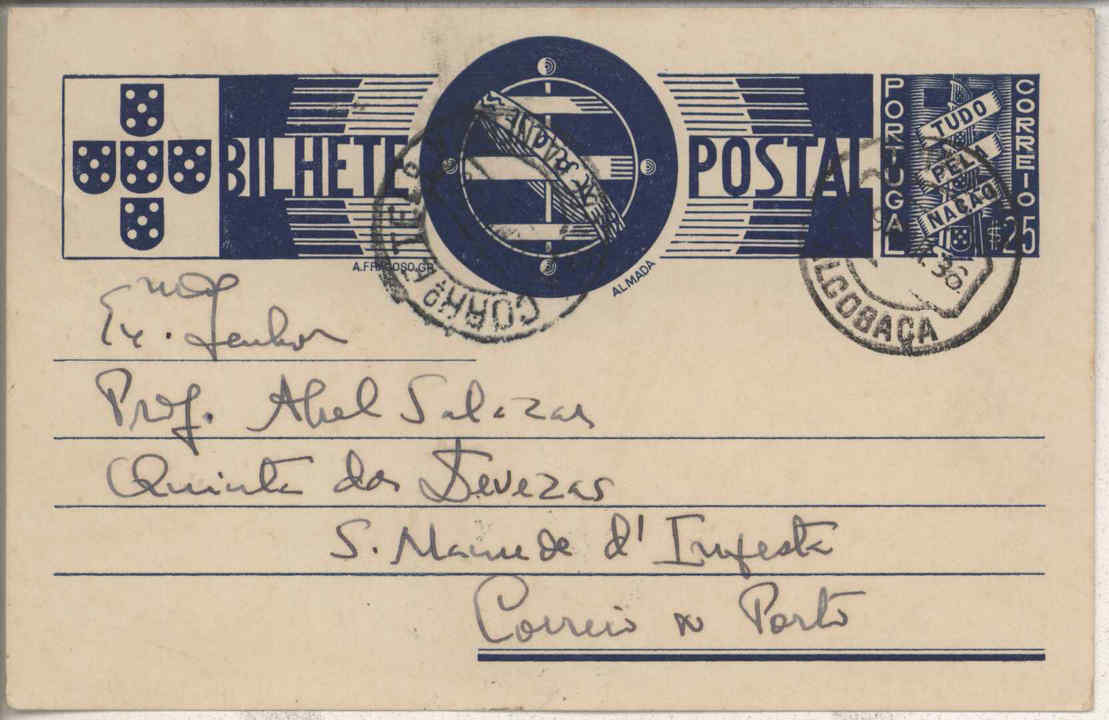 BILHETE POSTAL
PORTUGAL
CORREIO
TUDO
PELA
NAÇÃO
$25
A. FRAGOSO. GR.
ALMADA
CORRº
ALCOBAÇA
36
Exmo. Senhor
Prof. Abel Salazar
Quinta das Devezas
S. Mamede d'Infesta
Correio do Porto